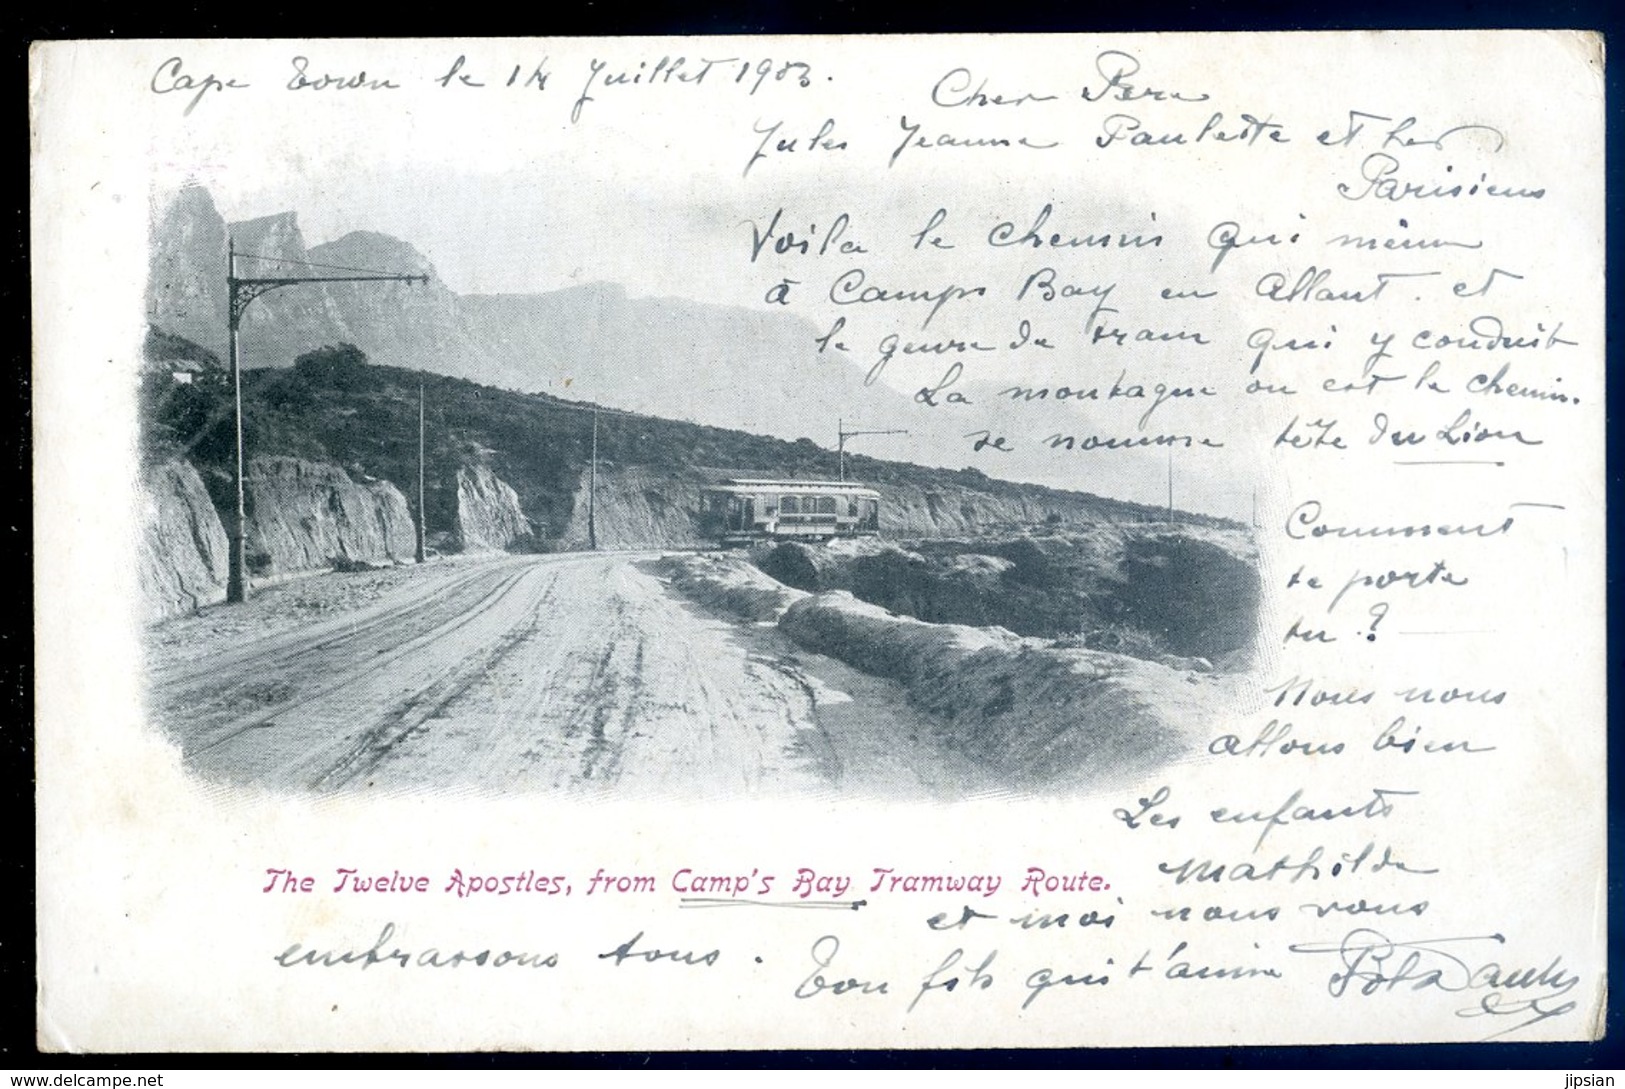 Cape Town le 14 Juillet 1903.
Cher Père
Jules Jeanne Paulette et les
Parisiens
Voila le chemin qui mène
à Camps Bay en allant. et
le genre de tram qui y conduit
La montagne ou est le chemin.
se nomme tête du Lion
Comment
te porte
tu ?
Nous nous
allons bien
Les enfants
Mathilde
et moi nous vous
embrassons tous.
Ton fils qui t'aime
The Twelve Apostles, from Camp's Bay Tramway Route.
delcampe.net
jipsian